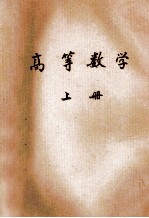 高等数学
上册